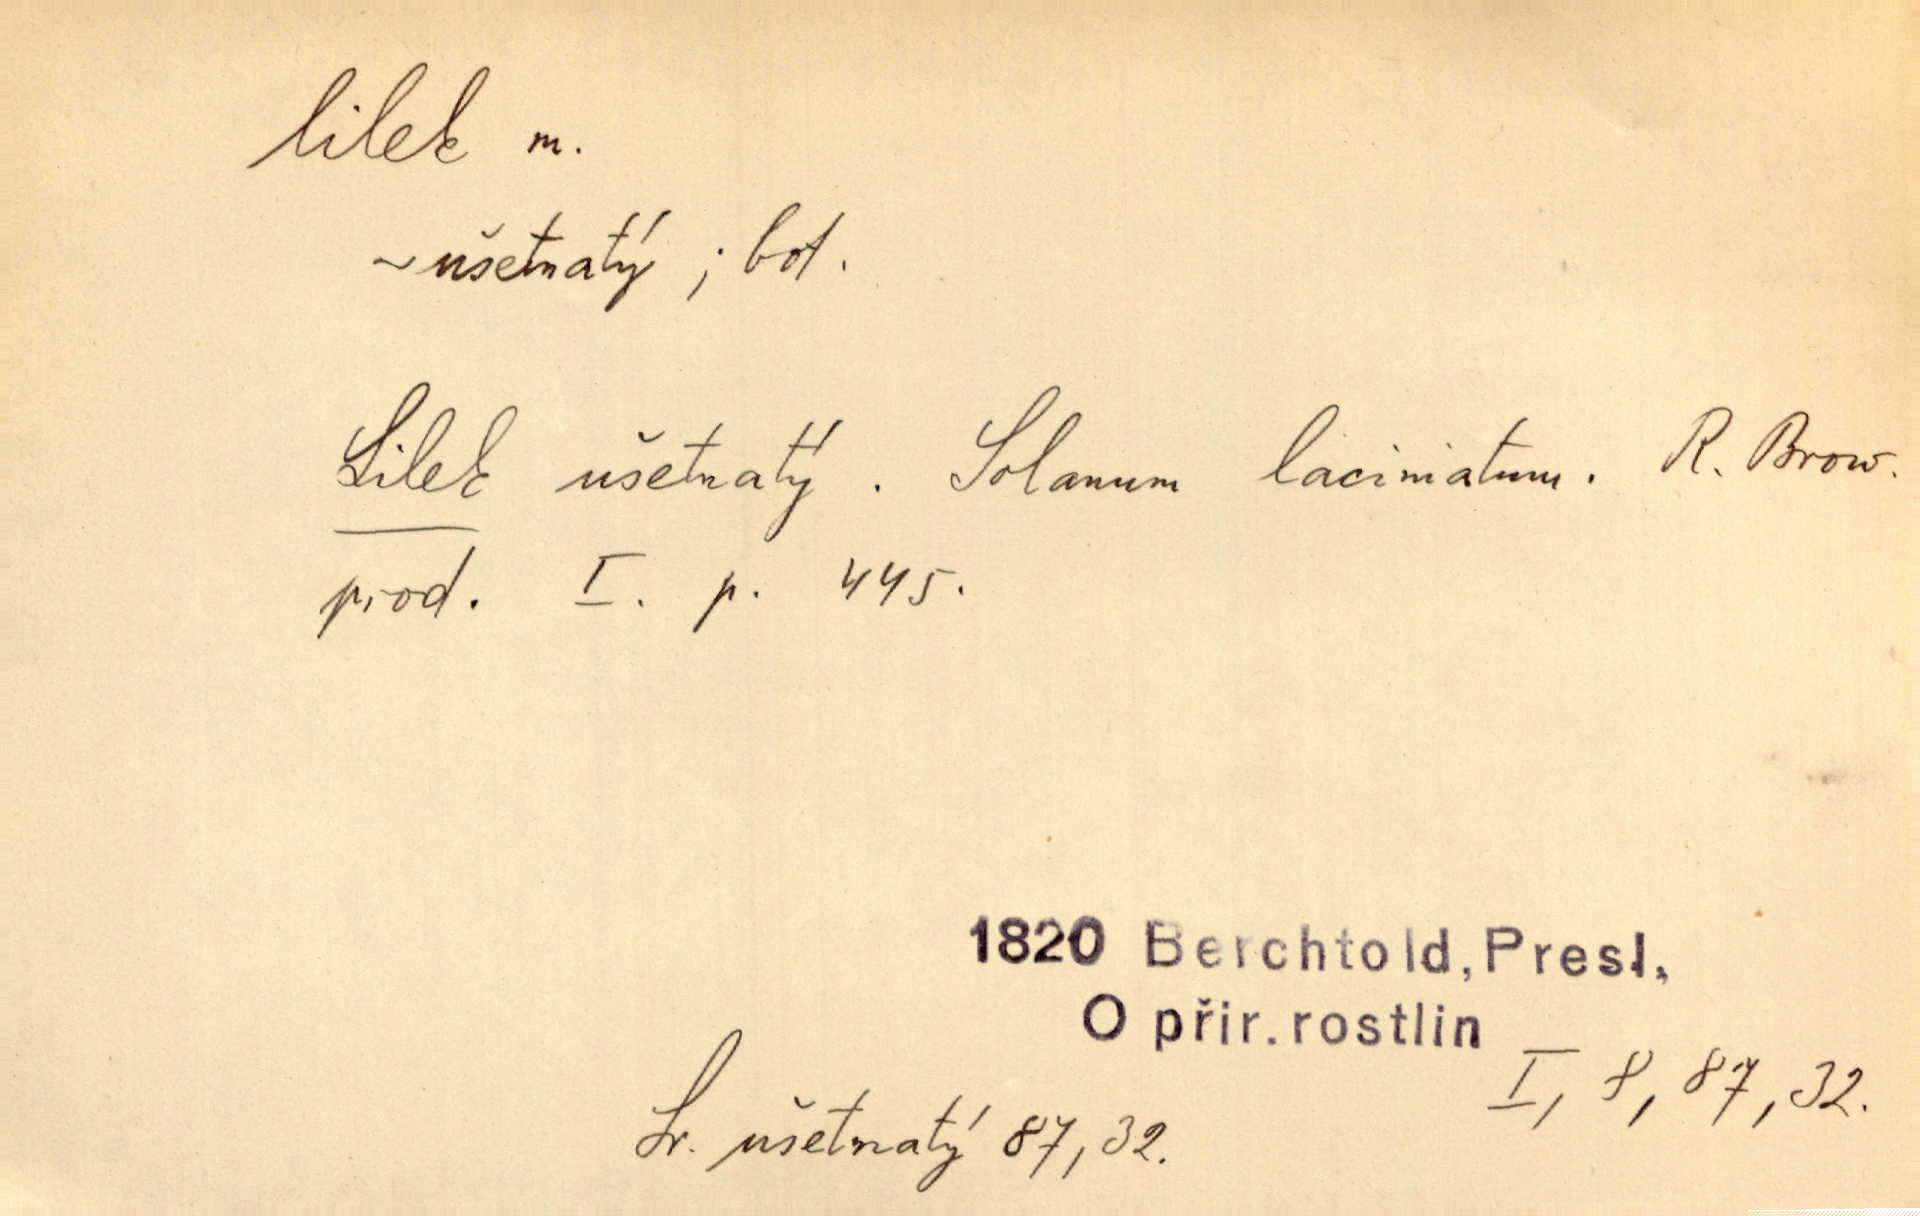 lilek m.
~ ušetnatý ; bot.
Lilek ušetnatý . Solanum laciniatum . R. Brow.
prod. I. p. 445.
1820 Berchtold, Presl,
O přir. rostlin
I, 8, 87, 32.
Sr. ušetnatý 87, 32.